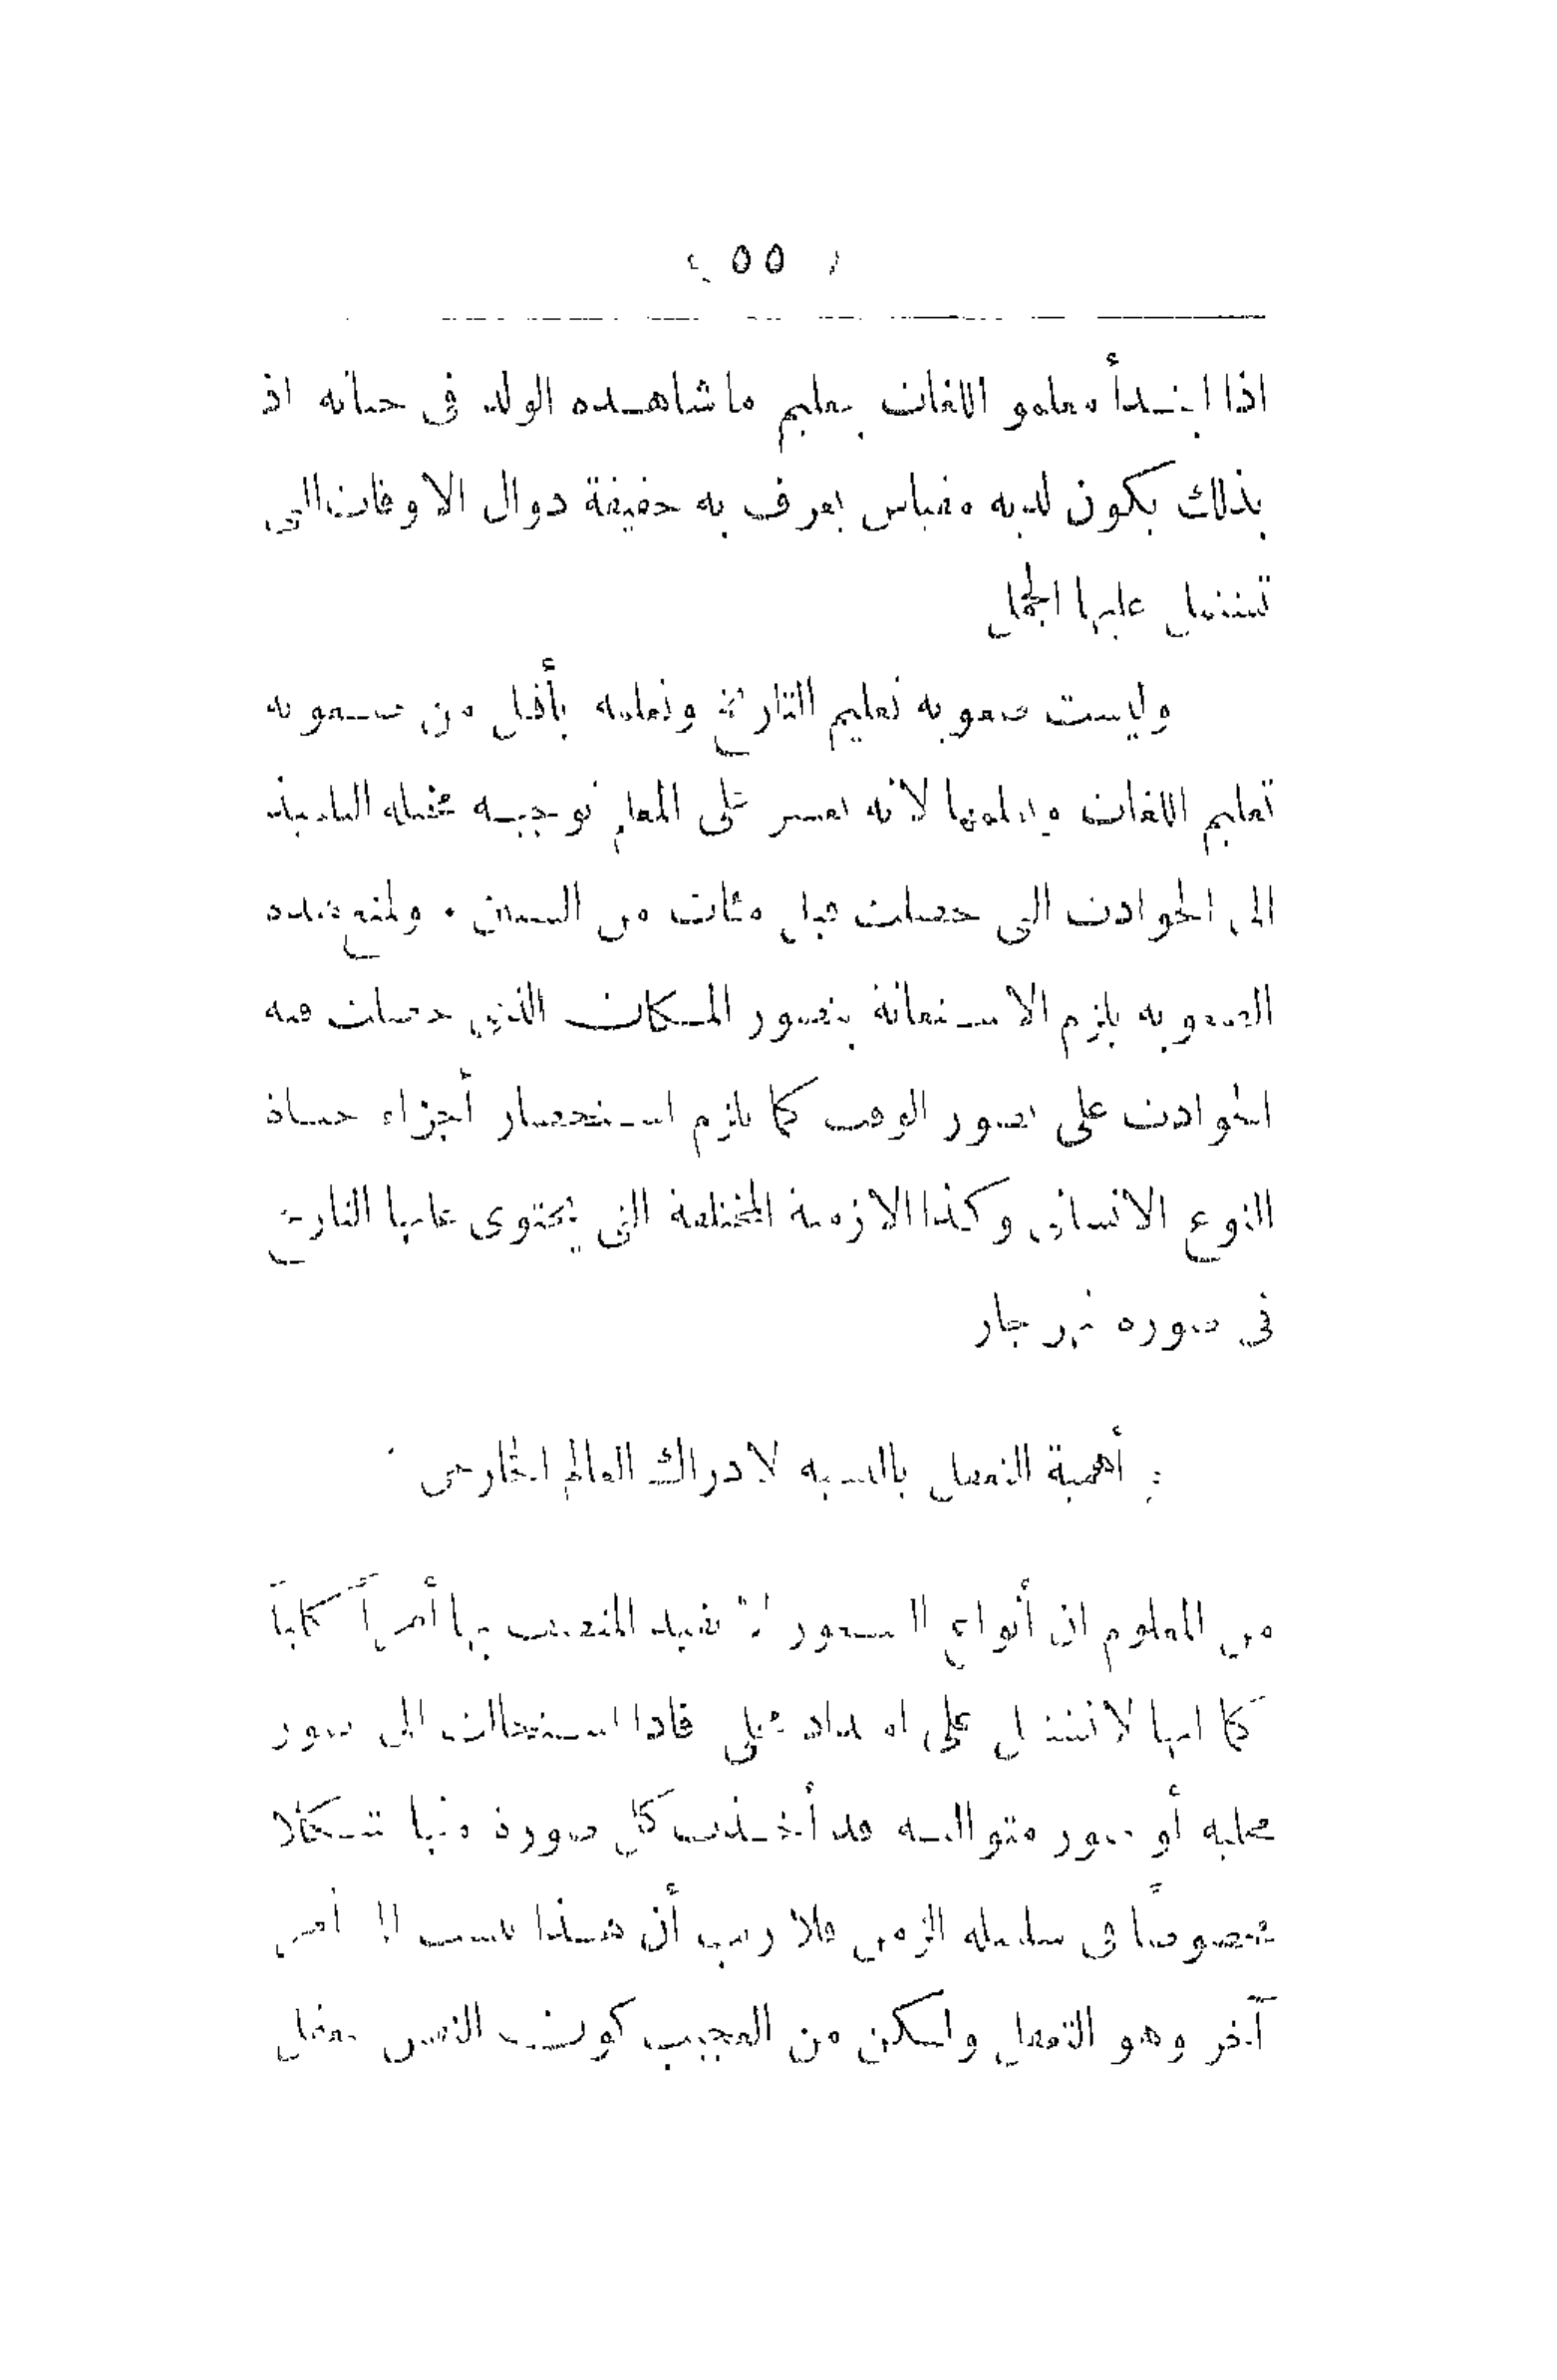 ( ٥٥ )
اذا ابتدأ معلمو اللغات بتعليم ما شاهده الولد فى حياته اذ
بذلك يكون لديه مقياس يعرف به حقيقة دوال الاوقات التى
تشتمل عليها الجمل
وليست صعوبة تعليم التاريخ وتعلمه بأقل من صعوبة
تعليم اللغات وتعلمها لانه يعسر على المعلم توجيه عقله التلميذ
الى الحوادث التى حصلت قبل مئات من السنين . ولمنع هذه
الصعوبة يلزم الاستعانة بتصور المكان الذى حصلت فيه
الحوادث على تصور الوقت كما يلزم استحضار أجزاء حياة
النوع الانسانى وكذا الازمنة المختلفة التى يحتوى عليها التاريخ
فى صورة نهر جار
( أهمية التعقل بالنسبة لادراك العالم الخارجى )
من المعلوم ان أنواع الشعور لا تفيد المتصف بها أمراً كلياً
كما انها لا تشتمل على امتداد عقلى فاذا استحالت الى صور
عقلية أو صور متوالية قد أخذت كل صورة منها شكلا
مخصوصاً فى سلسلة الزمن فلا ريب أن هذا بسبب أمر
آخر وهو التعقل ولكن من العجيب كون النفس تعقل